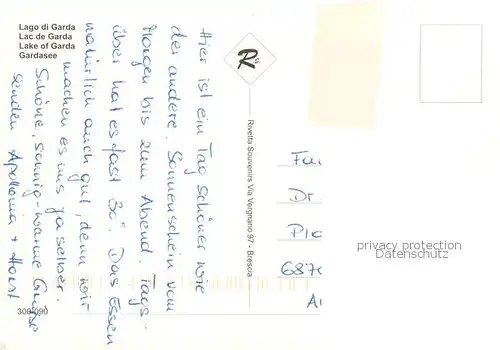 Lago di Garda
Lac de Garda
Lake of Garda
Gardasee
Hier ist ein Tag schöner wie
der andere. Sonnenschein vom
Morgen bis zum Abend. Tags-
über hat es fast 30°. Das Essen
natürlich auch gut, denn wir
machen es uns ja selber.
Schöne, sonnig-warme Grüße
senden Apollonia + Horst
300/090
R
Rivetta Souvenirs Via Vergnano 97 - Brescia
Fa
Dr
687
privacy protection
Datenschutz